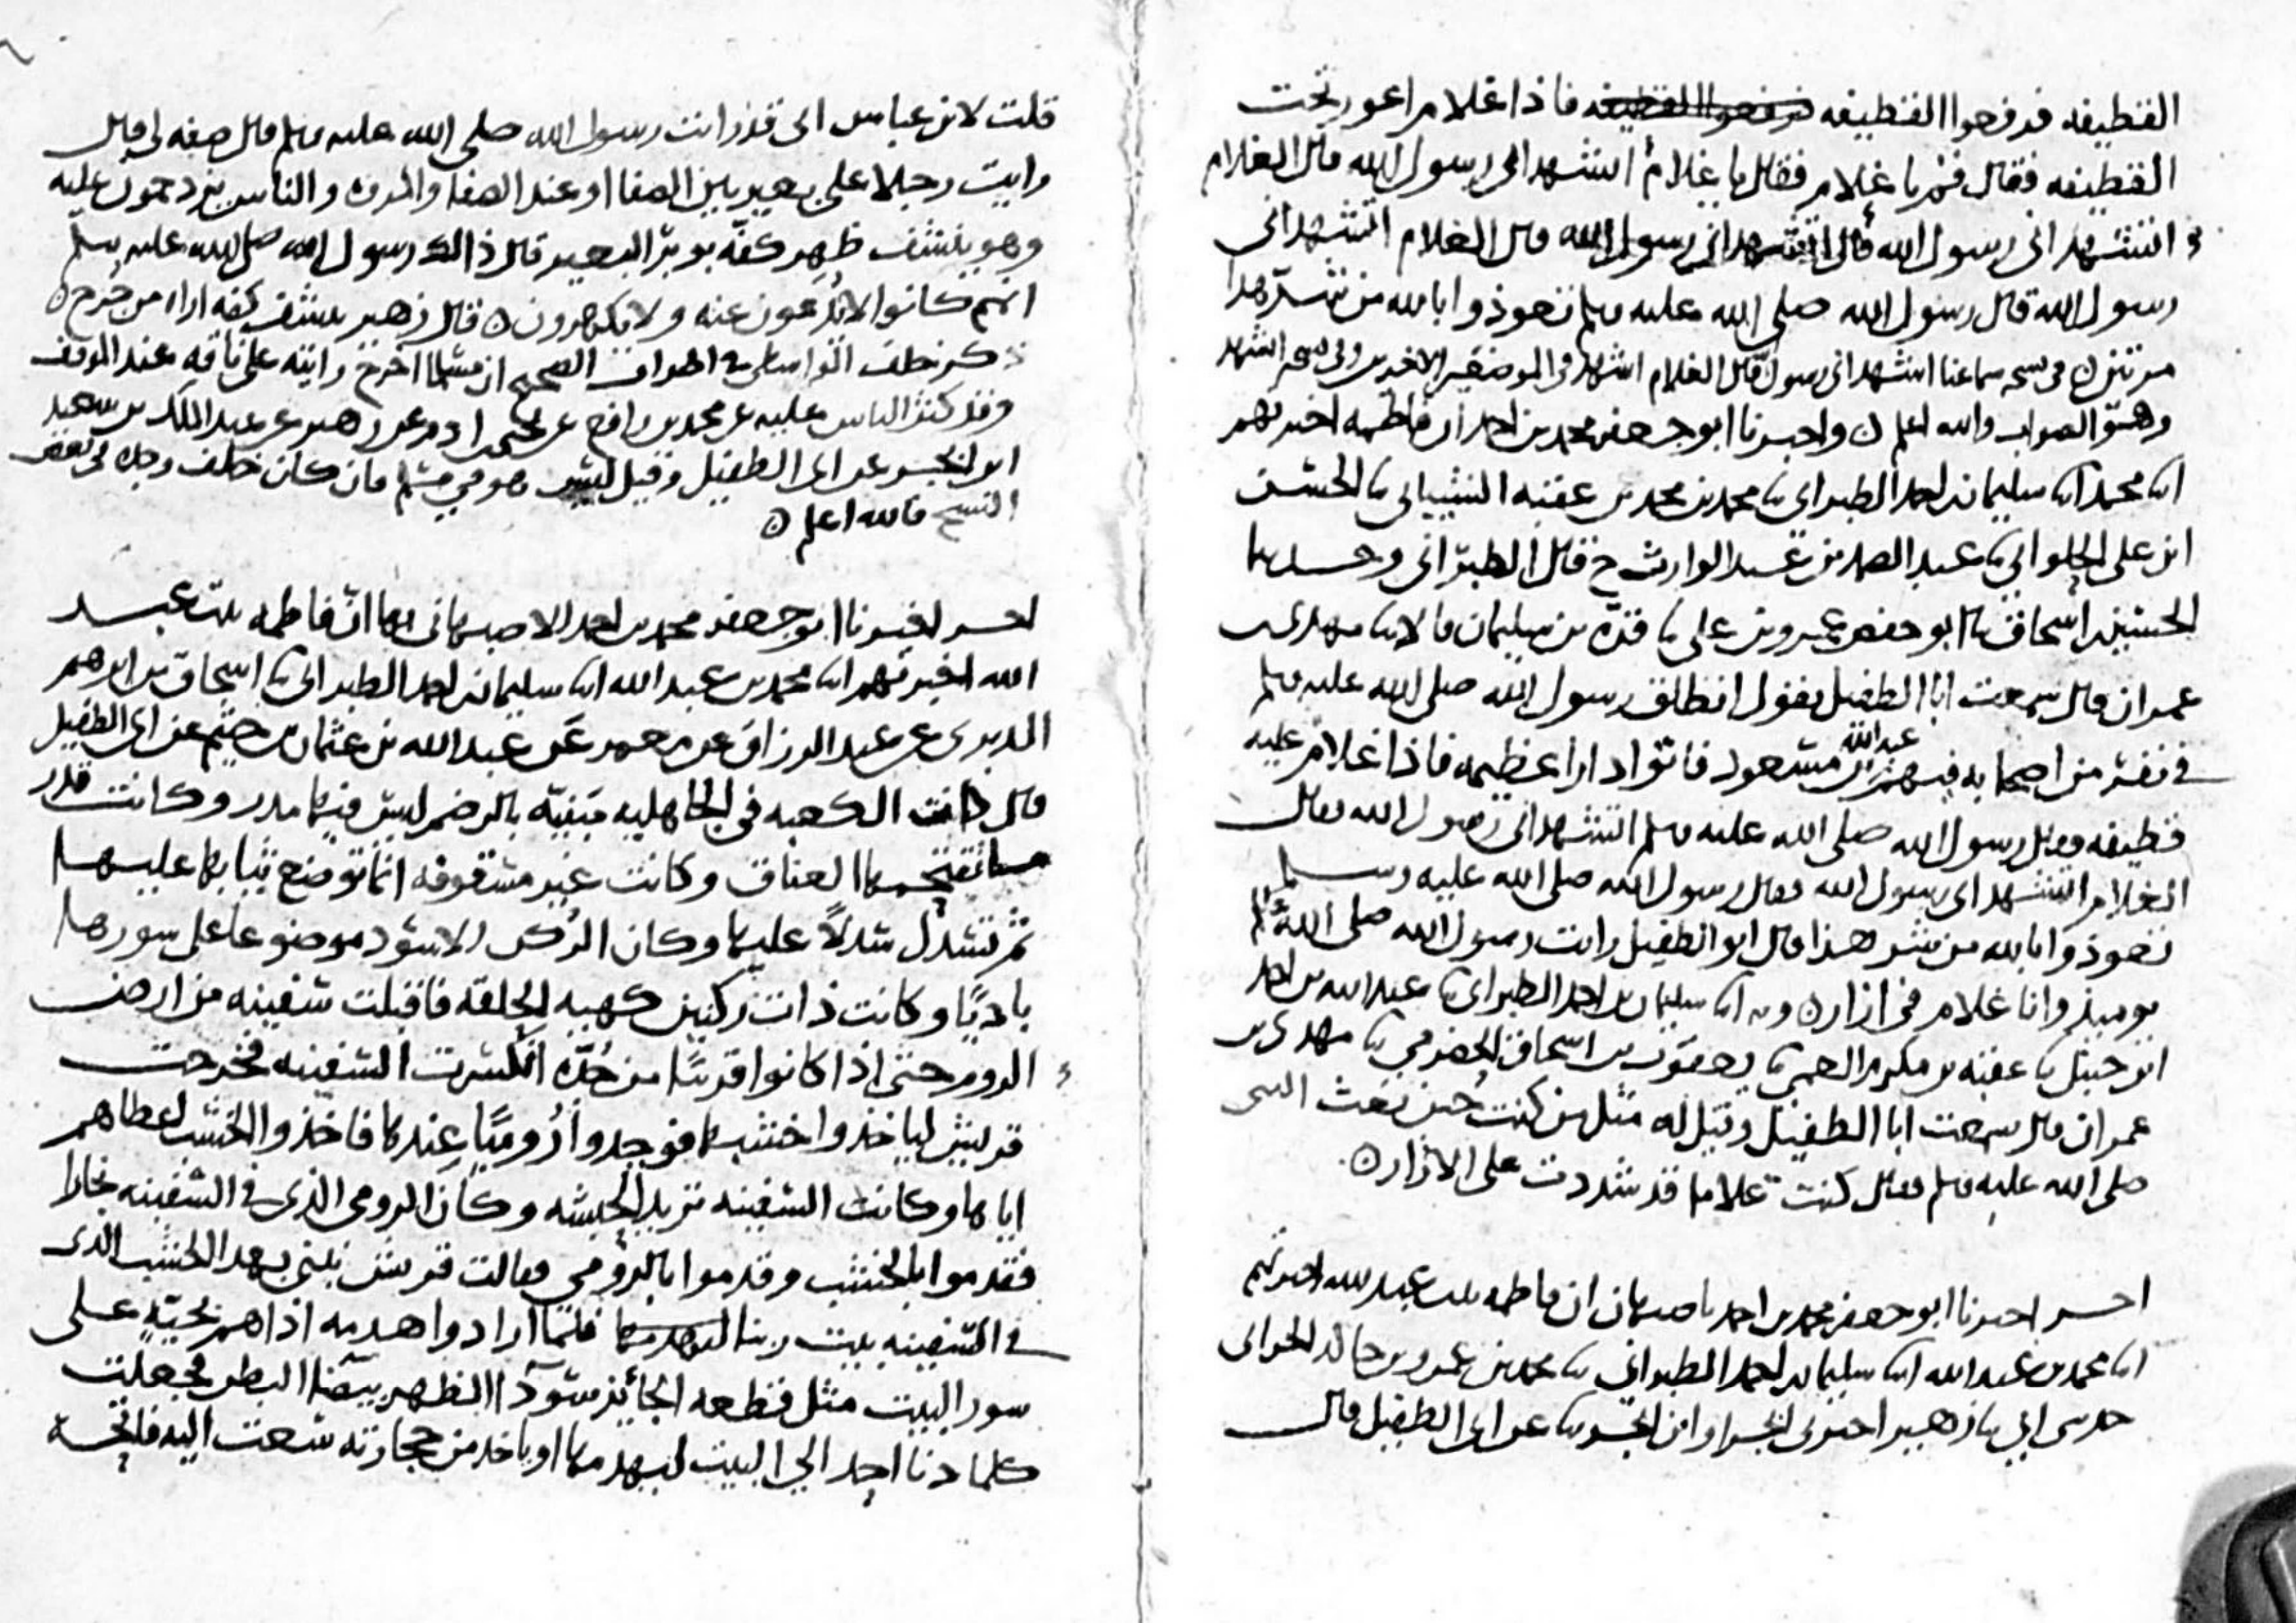 القطيفه فرفعوا القطيفه فرفعوا القطيفه فاذا غلام اعور تحت
القطيفه فقال قم يا غلام فقال يا غلام أتشهد اني رسول الله قال الغلام
اتشهد اني رسول الله قال اتشهد اني رسول الله قال الغلام اتشهد اني
رسول الله قال رسول الله صلى الله عليه وسلم تعوذوا بالله من شر هذا
مرتين في سماعنا اتشهد اني رسول قال الغلام اشهد في الموضعين الاخيرين وفي نسخه اتشهد
وهو الصواب والله اعلم ن واخبرنا ابو جعفر محمد بن احمد ان فاطمه اخبرتهم
ابنا محمد ابنا سليمان بن احمد الطبراني ثنا محمد بن محمد بن عقبه الشيباني ثنا الحسن
ابن علي الحلواني ثنا عبد الصمد بن عبد الوارث ح قال الطبراني وحدثنا
الحسين بن اسحاق ثنا ابو حفص عمرو بن علي ثنا قره بن سليمان قالا ثنا مهدي بن
عمران قال سمعت ابا الطفيل يقول انطلق رسول الله صلى الله عليه وسلم
في نفر من اصحابه فيهم عبد الله بن مسعود فاتوا دارا عظيمه فاذا غلام عليه
قطيفه فقال رسول الله صلى الله عليه وسلم اتشهد اني رسول الله فقال
الغلام اتشهد اني رسول الله فقال رسول الله صلى الله عليه وسلم
تعوذوا بالله من شر هذا قال ابو الطفيل رايت رسول الله صلى الله
يوميذ وانا غلام في ازار ن وبه ابنا سليمان بن احمد الطبراني ثنا عبد الله بن احمد
ابن حنبل ثنا عقبه بن مكرم العمي ثنا يعقوب بن اسحاق الحضرمي ثنا مهدي بن
عمران قال سمعت ابا الطفيل وقيل له مثل من كنت حين بعث النبي
صلى الله عليه وسلم فقال كنت غلاما قد شددت على الازار ن
اخبرنا ابو جعفر محمد بن احمد باصبهان ان فاطمه بنت عبد الله اخبرتهم
ابنا محمد بن عبد الله ابنا سليمان بن احمد الطبراني ثنا محمد بن عمرو بن خالد الحراني
حدثني ابي ثنا زهير اخبرني ابجر او ابن ابجر عن ابي الطفيل قال
قلت لابن عباس اني قد رايت رسول الله صلى الله عليه وسلم قال صفه لي قال
رايت رجلا على بعير بين الصفا او عند الصفا والمروه والناس يزدحمون عليه
وهو ينشف ظهر كفه بوبر البعير قال ذاك رسول الله صلى الله عليه وسلم
انهم كانوا لا يدعون عنه ولا يكهرون ن قال زهير ينشف كفه اراه من جرح ن
ذكر خلف الواسطي في اطراف الصحيح ان مسلما اخرج رايته على ناقه عند المروه
وقد كثر الناس عليه عن محمد بن رافع عن يحيى بن ادم عن زهير عن عبد الملك بن سعيد
ابن ابجر عن ابي الطفيل وقيل ليس هو في مسلم فان كان خلف وجده في بعض
النسخ فالله اعلم ن
اخبرنا ابو جعفر محمد بن احمد الاصبهاني بها ان فاطمه بنت عبد
الله اخبرتهم ابنا محمد بن عبد الله ابنا سليمان بن احمد الطبراني ثنا اسحاق بن ابرهيم
الدبري عن عبد الرزاق عن معمر عن عبد الله بن عثمان بن خثيم عن ابي الطفيل
قال كانت الكعبه في الجاهليه مبنيه بالرضم ليس فيها مدر وكانت قدر
ما نقتحمها العناق وكانت غير مسقوفه انما توضع ثيابها عليها
ثم تسدل سدلا عليها وكان الركن الاسود موضوعا على سورها
باديا وكانت ذات ركنين كهيه الحلقه فاقبلت سفينه من ارض
الروم حتى اذا كانوا قريبا من جده انكسرت السفينه فخرجت
قريش لياخذوا خشبها فوجدوا روميا عندها فاخذوا الخشب اعطاهم
اياها وكانت السفينه تريد الحبشه وكان الرومي الذي في السفينه نجارا
فقدموا بالخشب وقدموا بالرومي فقالت قريش نبني بهذا الخشب الذي
في السفينه بيت ربنا فلما ارادوا هدمه اذا هم بحيه على
سور البيت مثل قطعه الجائز سودا الظهر بيضا البطن فجعلت
كلما دنا احد الى البيت ليهدمها او ياخذ من حجارته سعت اليه فاتحه